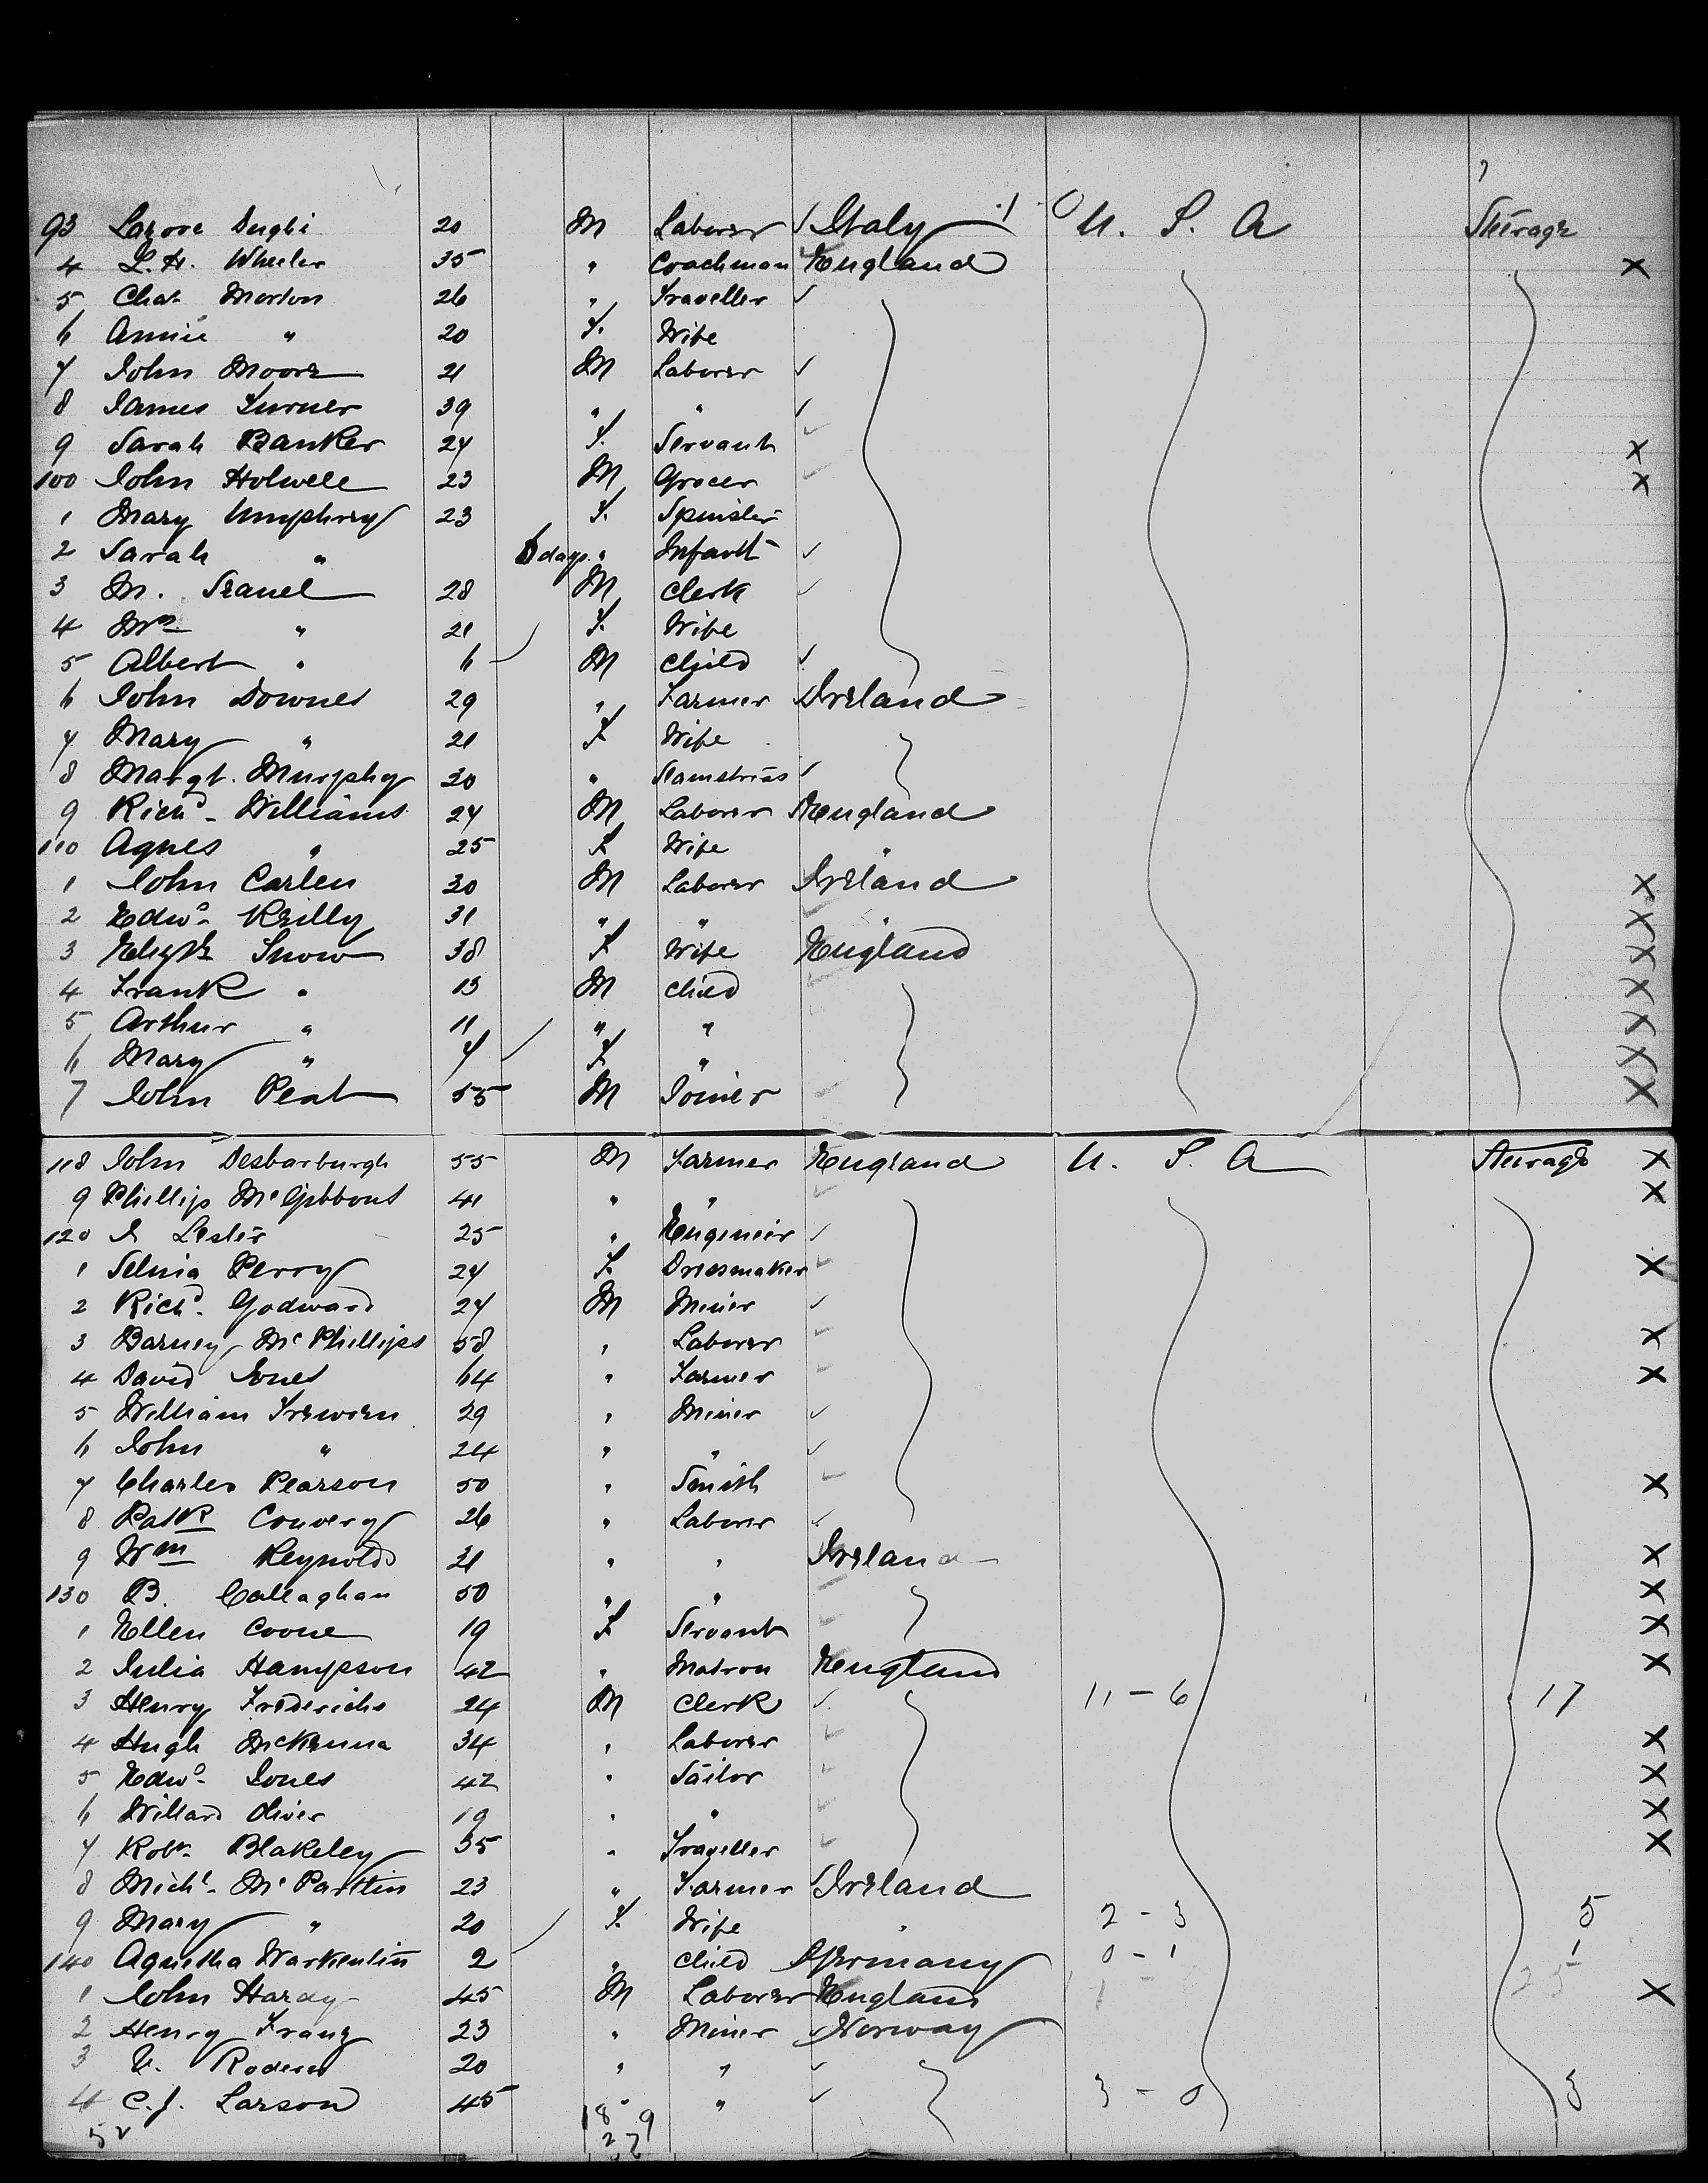 93 Lazore Dughi 20 M Laborer ✓ Italy U. S. A Steerage
4 L. H. Wheeler 35 " Coachman England X
5 Chas. Morton 26 " Traveller ✓
6 Annie " 20 F. Wife
7 John Moore 21 M Laborer ✓
8 James Turner 39 " " ✓
9 Sarah Banker 24 F. Servant ✓ X
100 John Holwell 23 M Grocer ✓ X
1 Mary Umphrey 23 F. Spinster
2 Sarah " 6 days " Infant ✓
3 M. 28 M Clerk ✓
4 Mrs " 21 F. Wife
5 Albert " 6 M Child ✓
6 John Downes 29 " Farmer Ireland
7 Mary " 21 F Wife
8 Margt. Murphy 20 " Seamstress ✓
9 Richd. Williams 24 M Laborer England
110 Agnes " 25 F Wife "
1 John Carlen 30 M Laborer Ireland X
2 Edwd. Reilly 31 " " " X
3 Elizth Snow 38 F Wife England X
4 Frank " 13 M Child X
5 Arthur " 11 " " X
6 Mary " 7 F " X
7 John Peat 55 M Joiner X
118 John Desbarburgh 55 M Farmer England U. S. A Steerage X
9 Phillip McGibbons 41 " " X
120 J Lester 25 " Engineer ✓
1 Selina Perry 24 F. Dressmaker ✓ X
2 Richd. Godward 24 M Miner ✓
3 Barney McPhillips 58 " Laborer ✓ X
4 David Jones 64 " Farmer ✓ X
5 William Treworn 29 " Miner ✓
6 John " 24 " " ✓
7 Charles Pearson 50 " Smith ✓ X
8 Patk Convery 26 " Laborer ✓
9 Wm Reynolds 21 " " Ireland X
130 B. Callaghan 50 " " X
1 Ellen Coone 19 F Servant ✓ X
2 Julia Hampson 42 " Matron England X
3 Henry Frederichs 24 M Clerk ✓ 11 - 6 17
4 Hugh McKenna 34 " Laborer ✓ X
5 Edwd. Jones 42 " Sailor ✓ X
6 Willard Oliver 19 " " ✓ X
7 Robt. Blakeley 35 " Traveller ✓ X
8 Michl. McPartlin 23 " Farmer Ireland
9 Mary " 20 F. Wife " 2 - 3 5
140 Agnetha Warkentin 2 " Child Germany 0 - 1 1
1 John Hardy 45 M Laborer England 1 - 25 X
2 Henry Franz 23 " Miner Norway
3 20 " " ✓
4 C. J. Larson 45 " " ✓ 3 - 0 3
52 18 - 9